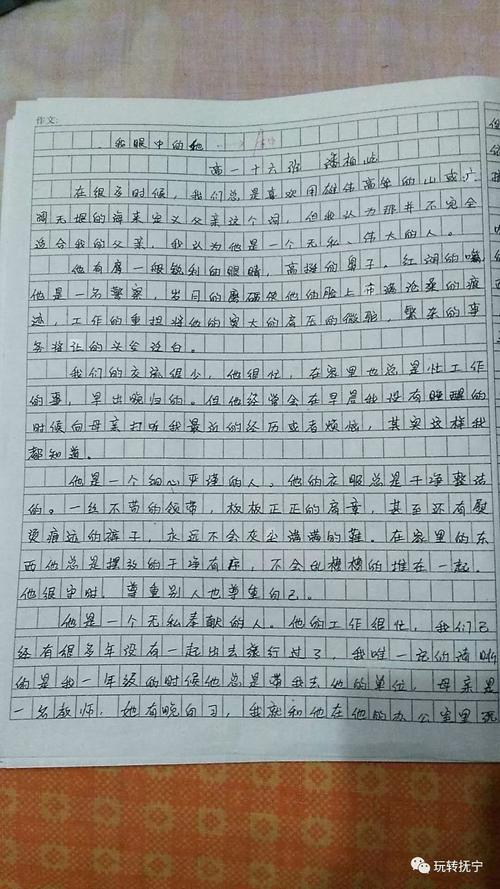 作文:
我眼中的他
高一十六班 潘柏屹
在很多时候，我们总是喜欢用雄伟高耸的山或广
阔无垠的海来定义父亲这个词，但我认为那并不完全
适合我的父亲，我认为他是一个无私、伟大的人。
他有鹰一般锐利的眼睛，高挺的鼻子，红润的嘴
他是一名警察，岁月的磨砺使他的脸上布满沧桑的痕
迹，工作的重担将他的宽大的肩压的微驼，繁杂的事
务将让的头全没白。
我们的交流很少，他很忙，在家里也总是忙工作
的事，早出晚归的。但他经常会在早晨我没有睡醒的
时候向母亲打听我最近的经历或者烦恼，其实这样我
都知道。
他是一个细心严谨的人，他的衣服总是干净整洁
的。一丝不苟的领带，板板正正的肩章，甚至还有熨
烫痕迹的裤子，永远不会灰尘满满的鞋。在家里的东
西他总是摆放的干净有序，不会乱糟糟的堆在一起。
他很守时。尊重别人也尊重自己。
他是一个无私奉献的人。他的工作很忙，我们已
经有很多年没有一起出去旅行过了，我唯一记的清晰
的是我一年级的时候他总是带我去他的单位，母亲是
一名教师，她有晚自习，我就和他在他的办公室里玩
玩转抚宁